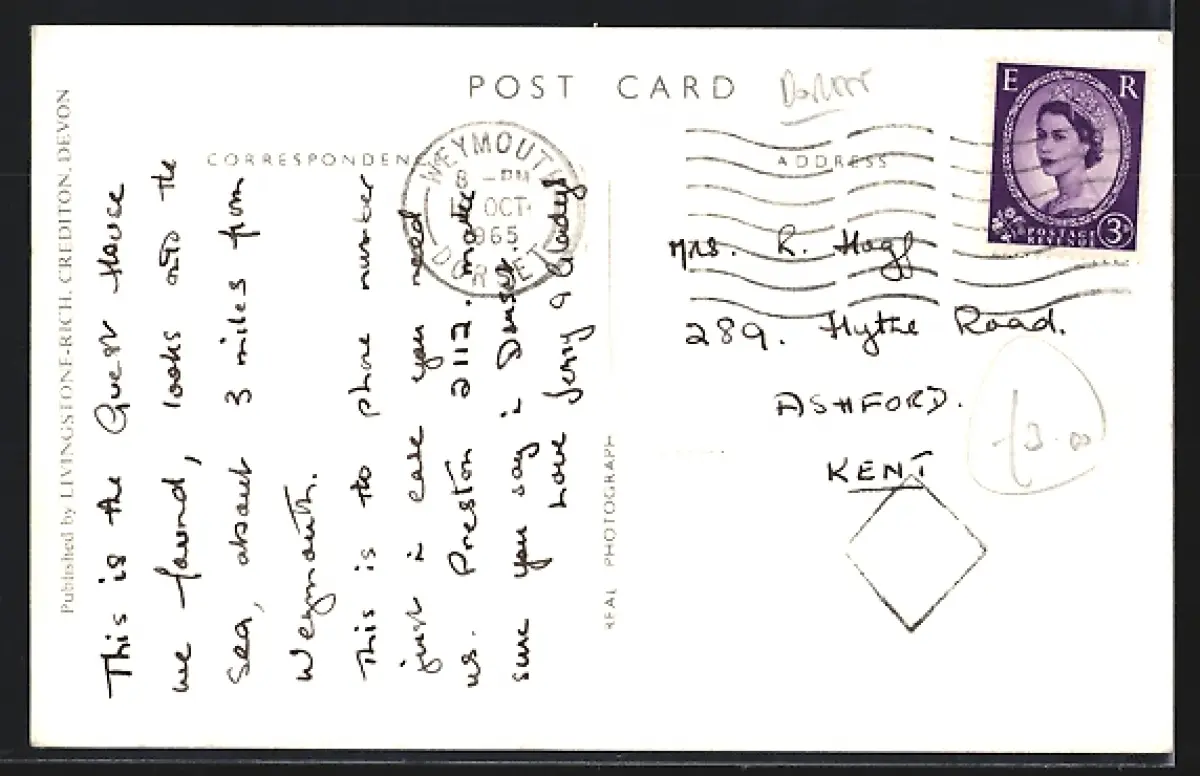 POST CARD
CORRESPONDENCE
ADDRESS
Published by LIVINGSTONE-RICH, CREDITON, DEVON
REAL PHOTOGRAPH
This is the Guest House
we found, looks onto the
sea, about 3 miles from
Weymouth.
This is the phone number
just in case you need
us. Preston 2112. make
sure you say in Dorset
Love Jerry & Gladys
WEYMOUTH
8 - PM
OCT
1965
DORSET
E R
POSTAGE
REVENUE
3D
Mrs. R. Hogg
289. Hythe Road.
ASHFORD.
KENT
Dorset
£3.00